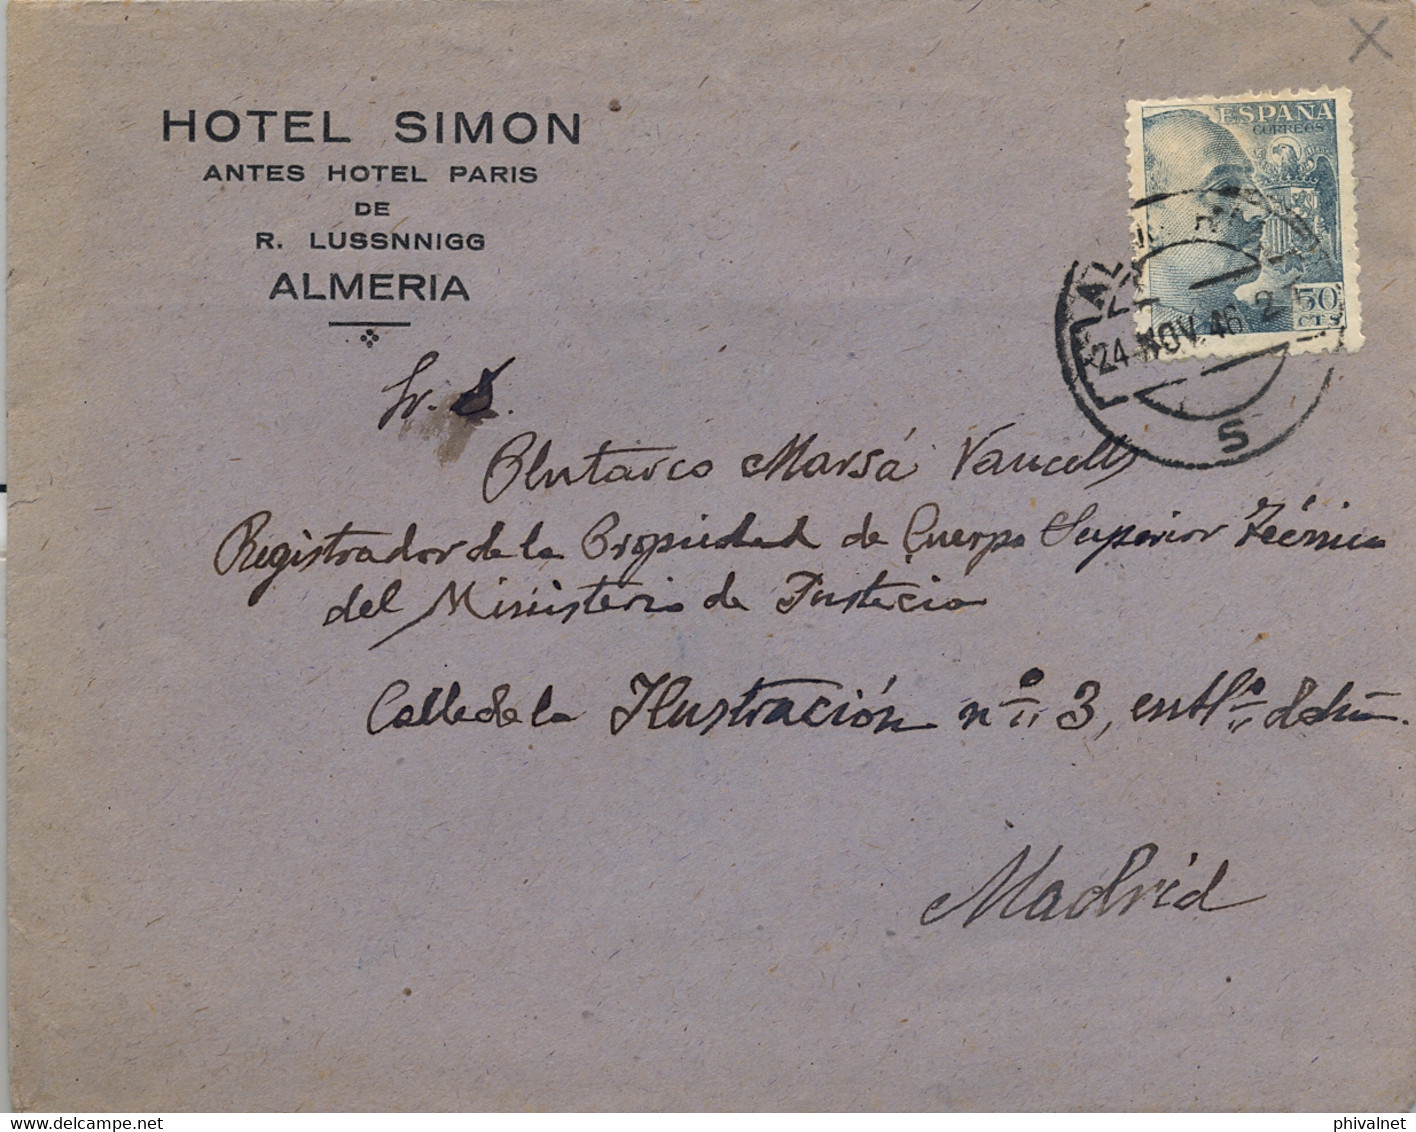 HOTEL SIMON
ANTES HOTEL PARIS
DE
R. LUSSNNIGG
ALMERIA
ESPAÑA
CORREOS
50
CTS
24 NOV. 46 2
5
Sr. D.
Plutarco Marsá Vancells
Registrador de la Propiedad de Cuerpo Superior Técnico
del Ministerio de Justicia
Calle de la Ilustración nº 3, entlº
Madrid
phivalnet